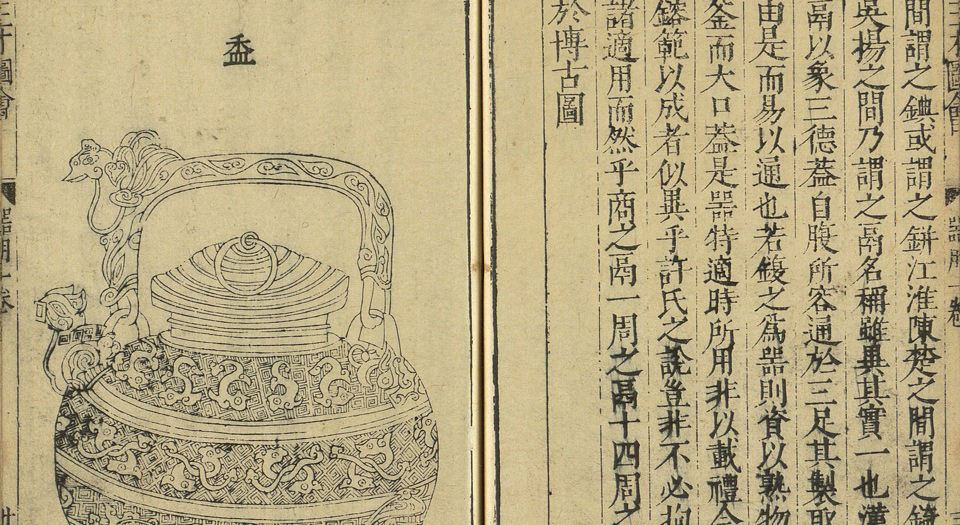 才圖會 器用 卷
間謂之錪或謂之鉼江淮陳楚之間謂之錡
吳揚之間乃謂之鬲名稱雖異其實一也漢
鬲以象三德蓋自腹所容通於三足其製取
由是而易以通也若鍑之爲器則資以熟物
釜而大口葢是器特適時所用非以載禮
鎔範以成者似異乎許氏之說豈非不必拘
諸適用而然乎商之鬲一周之鬲十四周之
於博古圖
盉
三才圖會 器用一卷